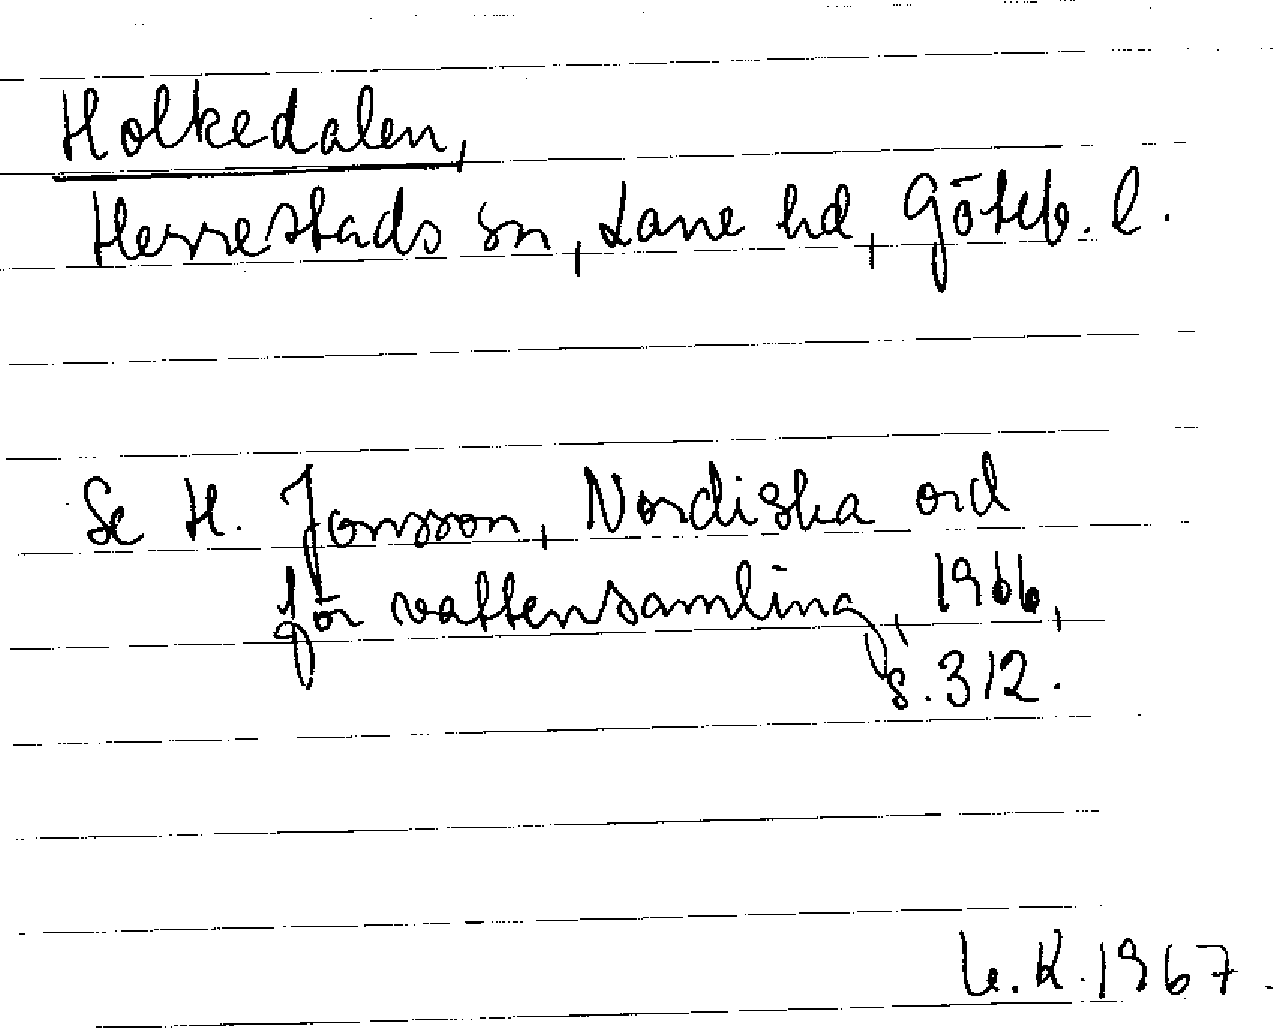 Holkedalen,
Herrestads sn, Lane hd, Göteb. l.
Se H. Jonsson, Nordiska ord
för vattensamling, 1966,
s. 312.
K. 1967.